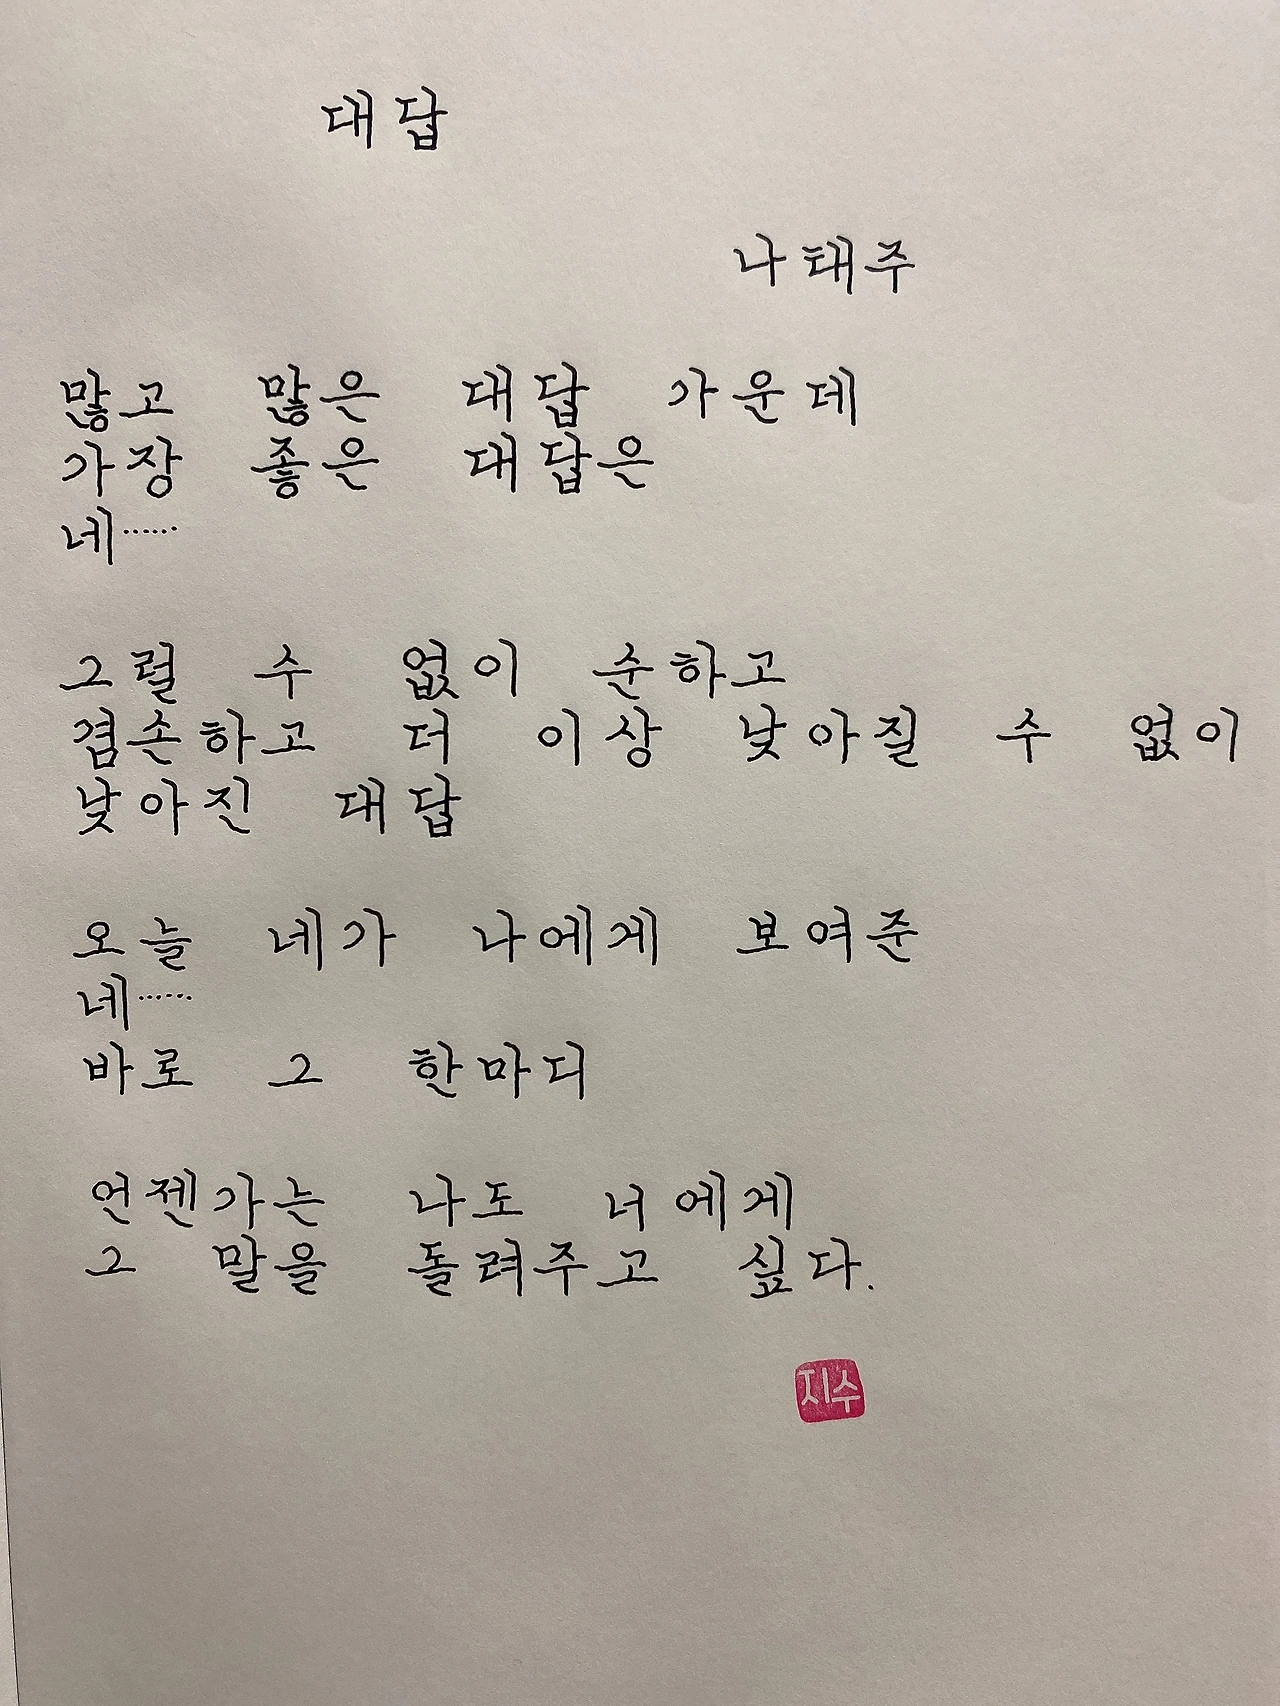 대답
나태주
많고 많은 대답 가운데
가장 좋은 대답은
네……
그럴 수 없이 순하고
겸손하고 더 이상 낮아질 수 없이
낮아진 대답
오늘 네가 나에게 보여준
네……
바로 그 한마디
언젠가는 나도 너에게
그 말을 돌려주고 싶다.
지수